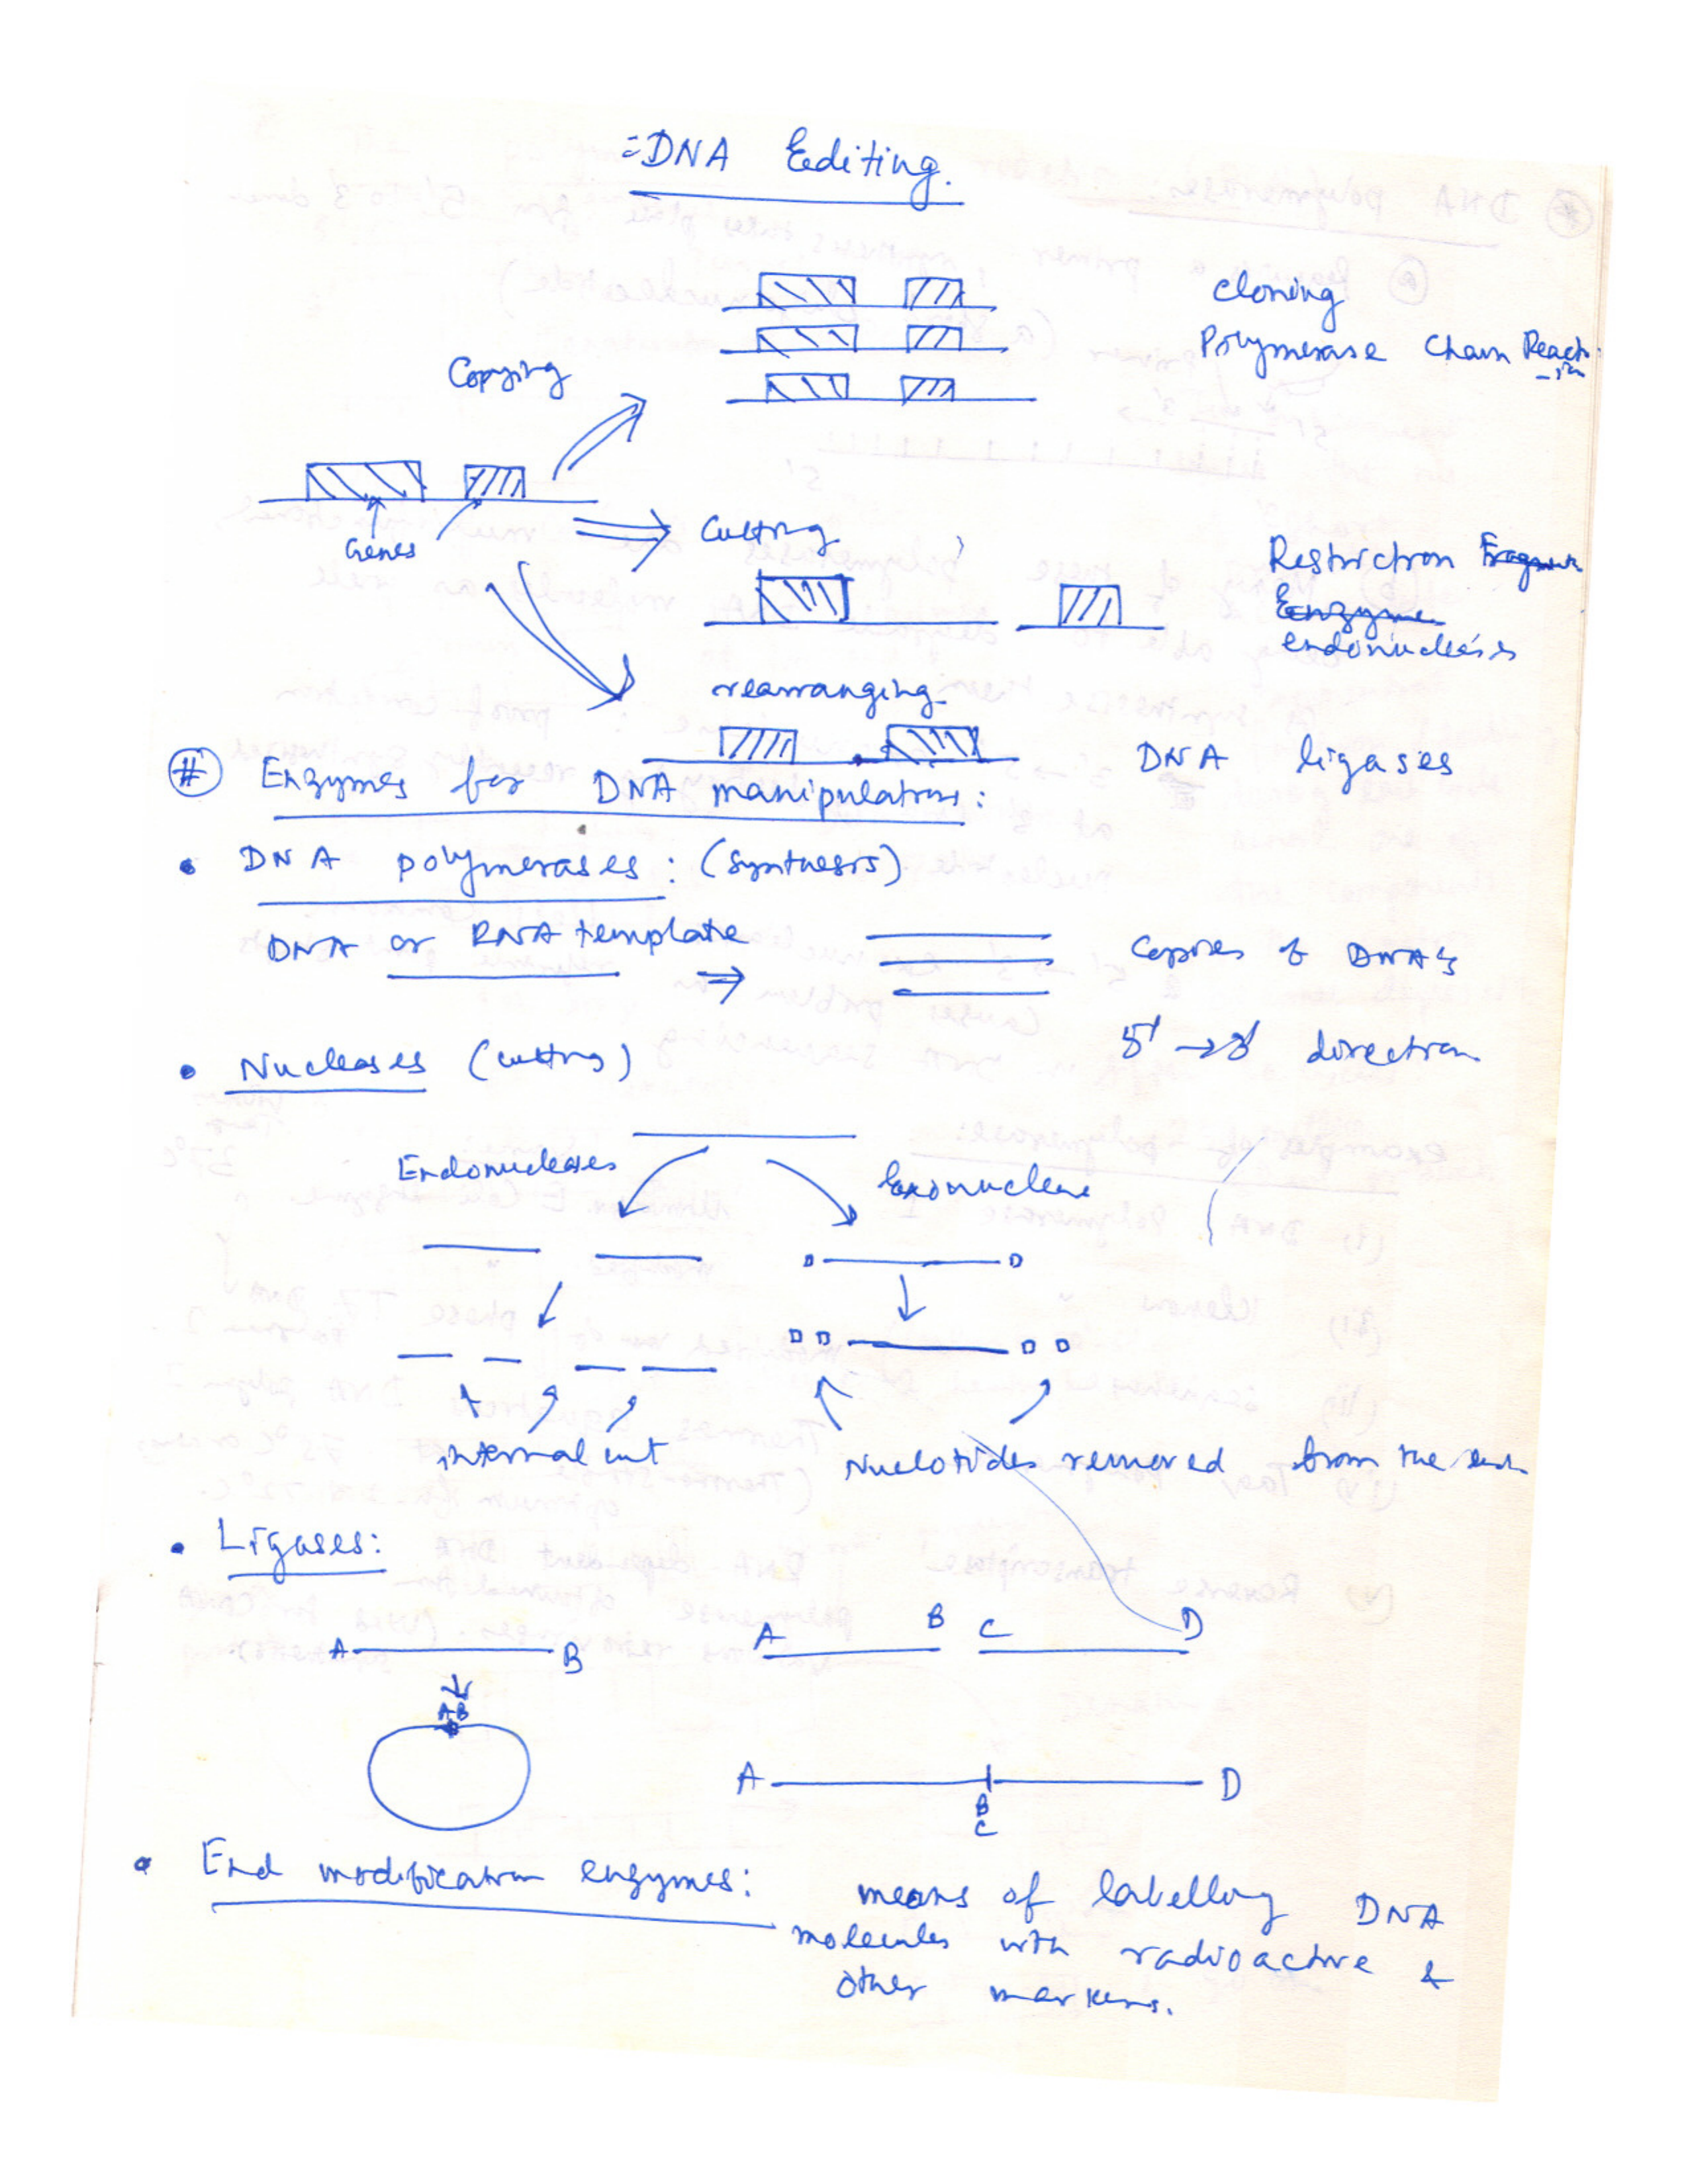 =DNA Editing.
cloning
Polymerase Chain Reaction
Copying
Genes
Cutting
Restriction
Enzyme
endonucleases
rearranging
DNA ligases
# Enzymes for DNA manipulations:
• DNA polymerases: (Synthesis)
DNA or RNA template ⇒ Copies of DNA's
5' → 3' direction
• Nucleases (cutting)
Endonucleases
Exonuclease
internal cut
Nucleotides removed from the end
• Ligases:
A B
A B C D
A B
A D
B
C
• End modification enzymes: means of labelling DNA
molecules with radioactive &
other markers.